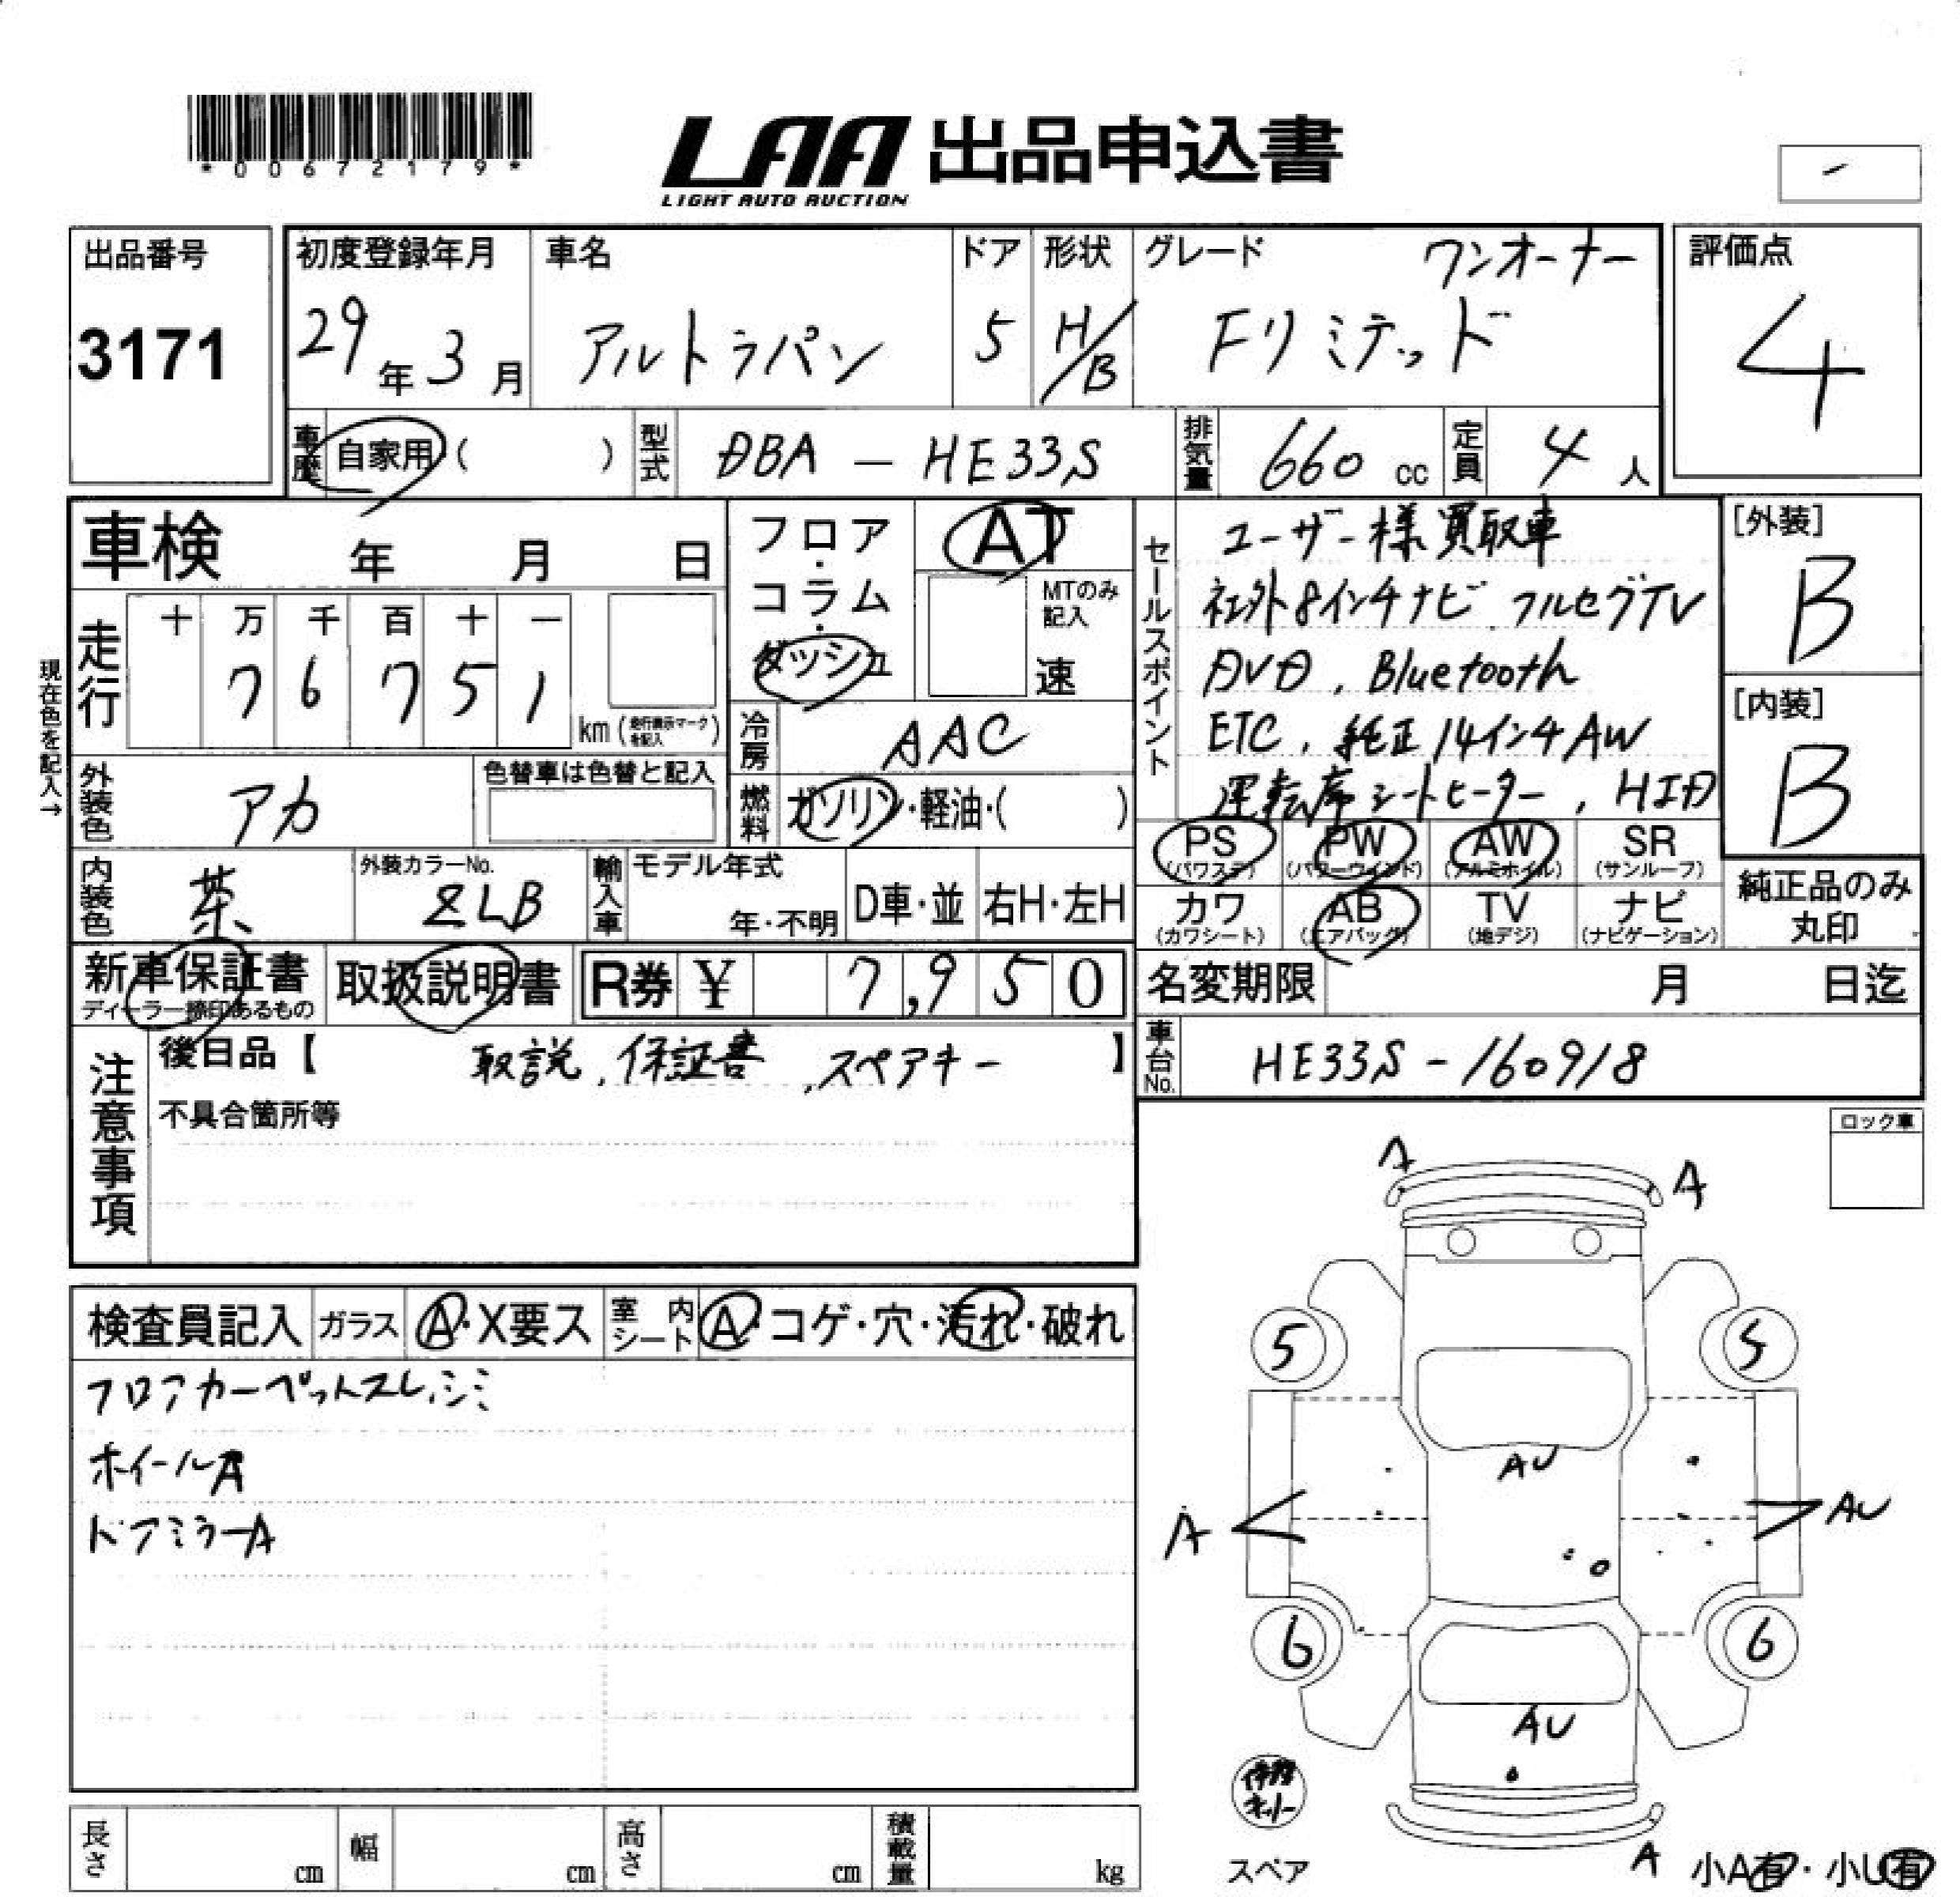 *00672179*
LAA 出品申込書
LIGHT AUTO AUCTION
出品番号
3171
初度登録年月
29年3月
車名
アルトラパン
ドア
5
形状
H/B
グレード
ワンオーナー
Fリミテッド
評価点
4
車歴
自家用( )
型式
DBA - HE33S
排気量
660 cc
定員
4 人
車検 年 月 日
現在色を記入→
走行
十 万 千 百 十 一
7 6 7 5 1
km(走行表示マークを記入)
フロア・コラム・ダッシュ
AT
MTのみ記入
速
冷房
AAC
燃料
ガソリン・軽油・( )
外装色
アカ
色替車は色替と記入
内装色
茶
外装カラーNo.
ZLB
輸入車
モデル年式
年・不明
D車・並
右H・左H
セールスポイント
ユーザー様買取車
社外8インチナビ.フルセグTV
DVD, Bluetooth
ETC, 純正14インチAW
運転席シートヒーター, HID
[外装]
B
[内装]
B
PS
(パワステ)
PW
(パワーウインド)
AW
(アルミホイル)
SR
(サンルーフ)
カワ
(カワシート)
AB
(エアバッグ)
TV
(地デジ)
ナビ
(ナビゲーション)
純正品のみ
丸印
新車保証書
ディーラー捺印あるもの
取扱説明書
R券 ¥ 7,950
名変期限 月 日迄
車台No.
HE33S-160918
注意事項
後日品【 取説,保証書,スペアキー 】
不具合箇所等
ロック車
検査員記入
ガラス
A・X要ス
室内シート
A・コゲ・穴・汚れ・破れ
フロアカーペットスレ,シミ
ホイールA
ドアミラーA
A
A
5
5
AU
A
AU
6
6
AU
スペア
A
小A有・小U有
長さ cm
幅 cm
高さ cm
積載量 kg